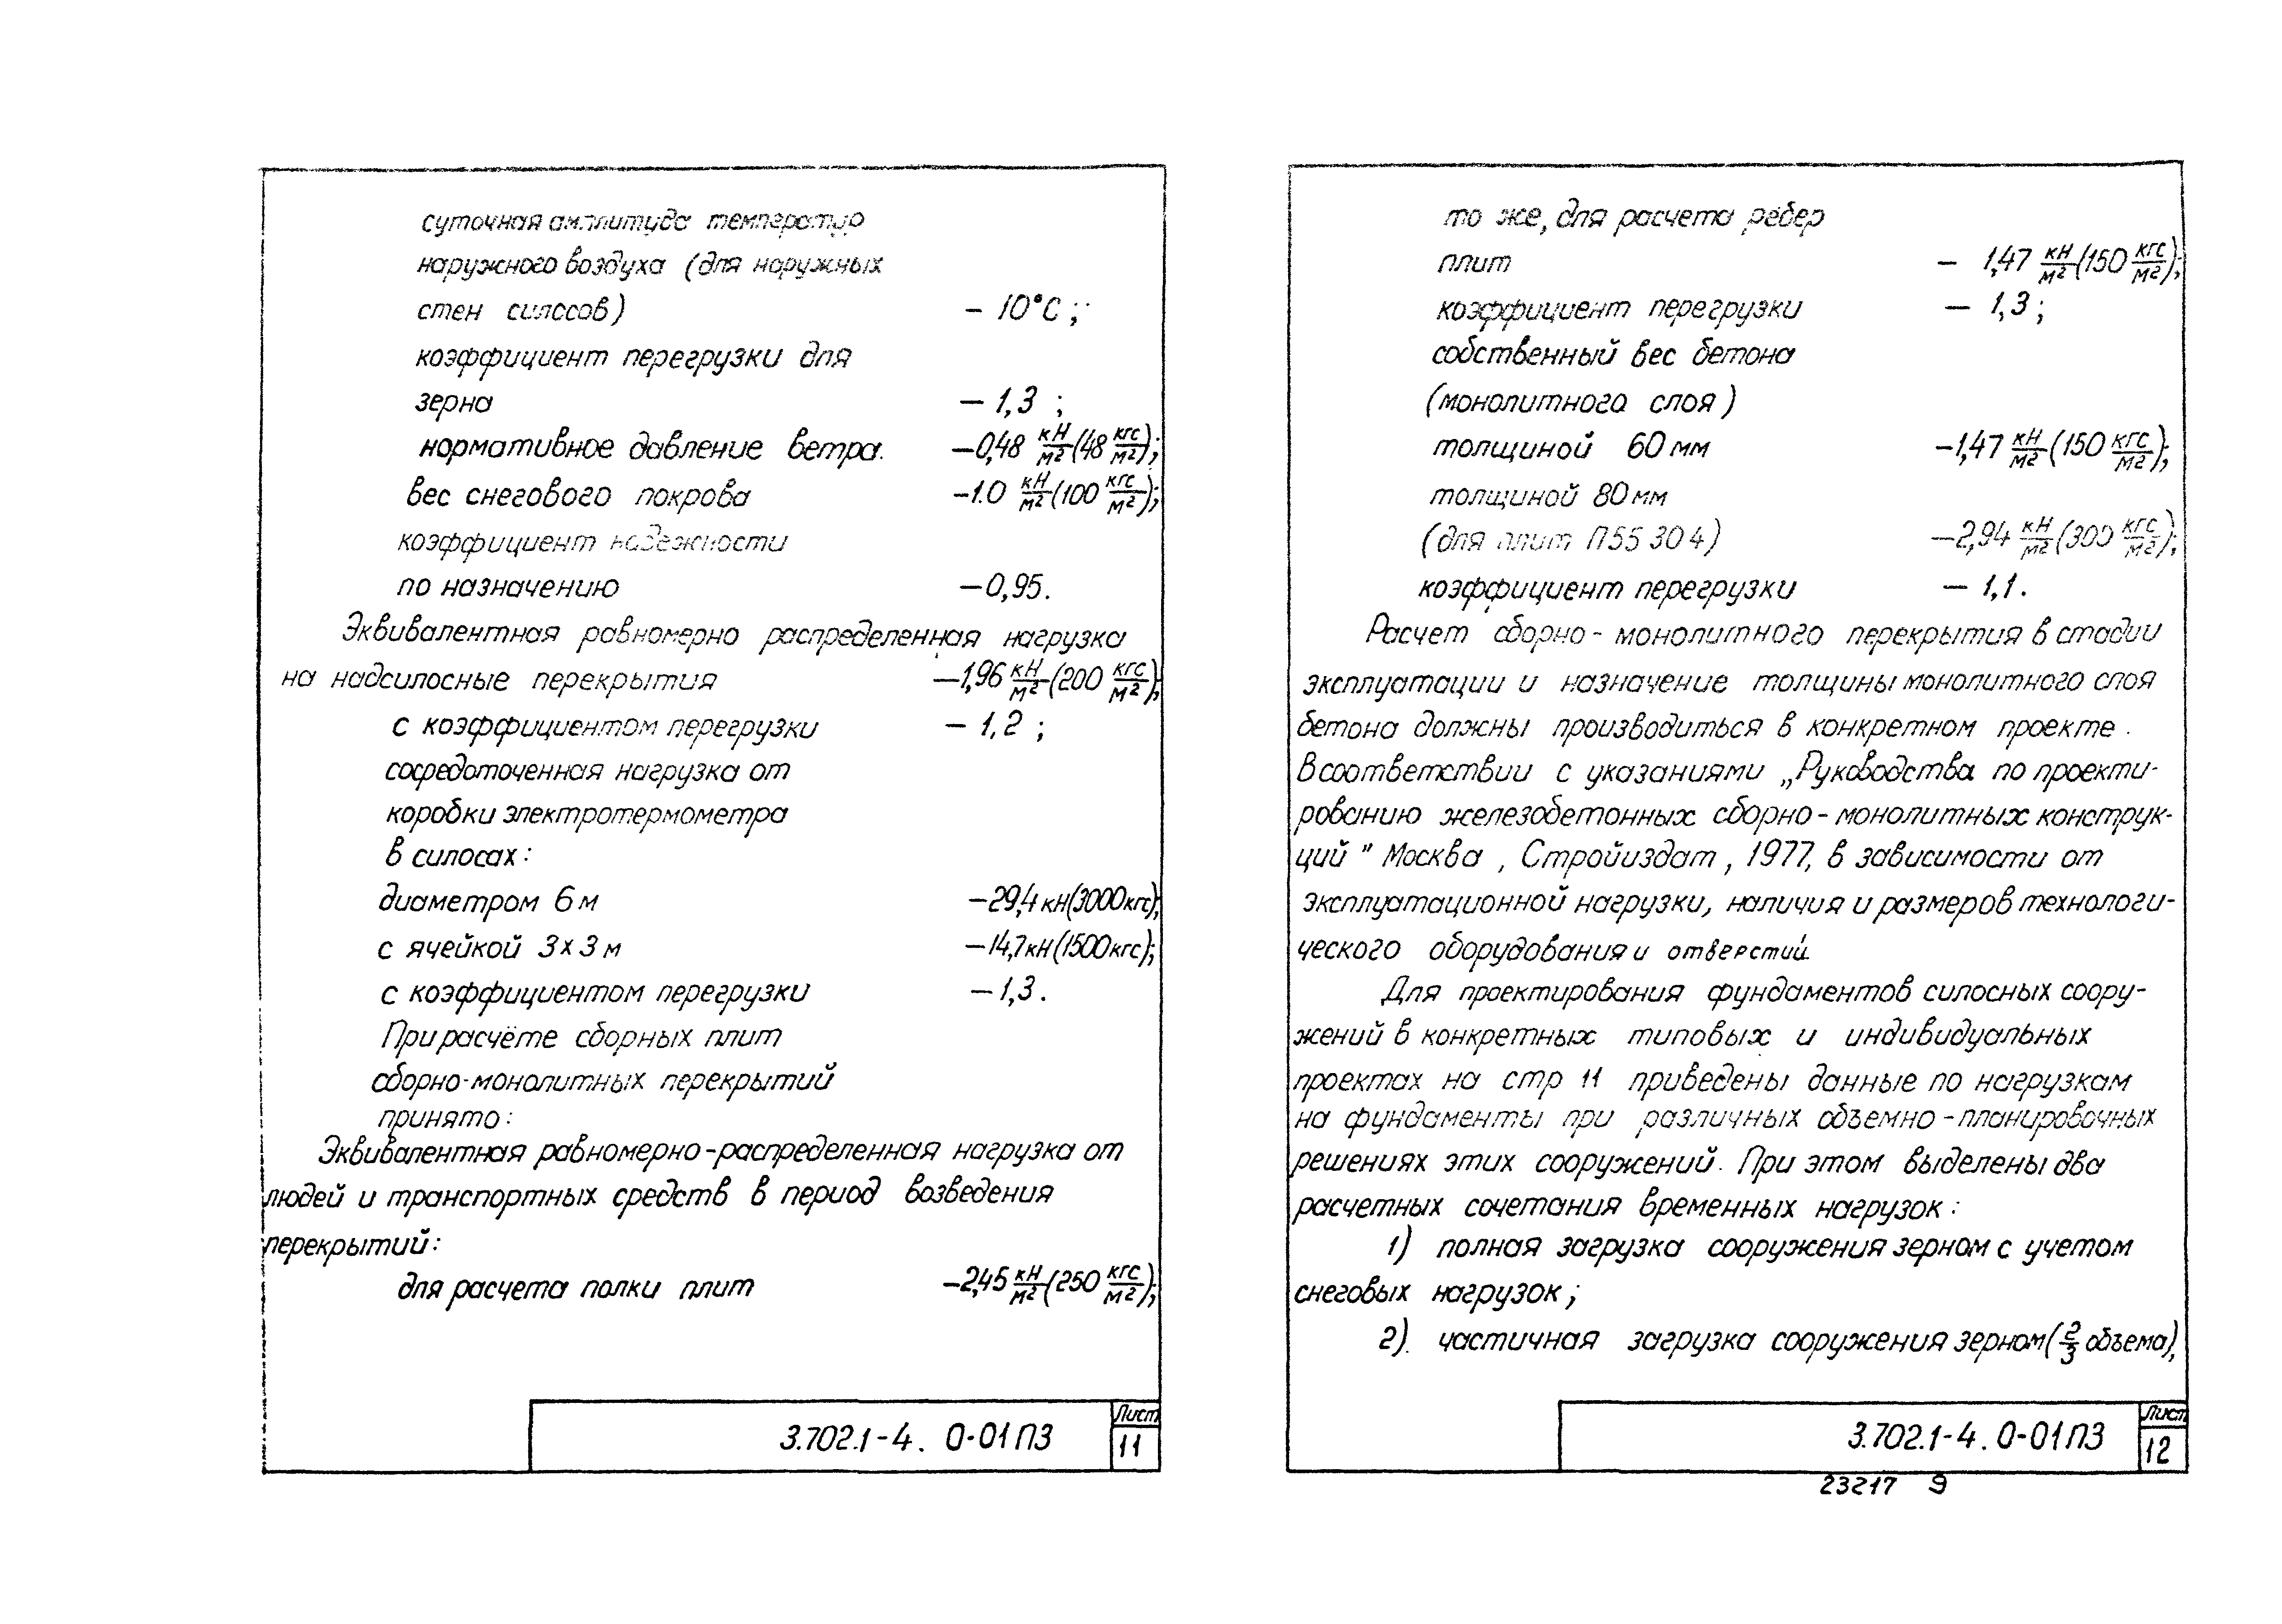 суточная амплитуда температур
наружного воздуха (для наружных
стен силосов) - 10°С;
коэффициент перегрузки для
зерна - 1,3;
нормативное давление ветра. - 0,48 кН/м² (48 кгс/м²);
вес снегового покрова - 1.0 кН/м² (100 кгс/м²);
коэффициент надежности
по назначению - 0,95.
Эквивалентная равномерно распределенная нагрузка
на надсилосные перекрытия - 1,96 кН/м² (200 кгс/м²);
с коэффициентом перегрузки - 1,2;
сосредоточенная нагрузка от
коробки электротермометра
в силосах:
диаметром 6 м - 29,4 кН (3000 кгс);
с ячейкой 3х3 м - 14,7 кН (1500 кгс);
с коэффициентом перегрузки - 1,3.
При расчёте сборных плит
сборно-монолитных перекрытий
принято:
Эквивалентная равномерно-распределенная нагрузка от
людей и транспортных средств в период возведения
перекрытий:
для расчета полки плит - 2,45 кН/м² (250 кгс/м²);
3.702.1-4. 0-01ПЗ
Лист
11
то же, для расчета ребер
плит - 1,47 кН/м² (150 кгс/м²);
коэффициент перегрузки - 1,3;
собственный вес бетона
(монолитного слоя)
толщиной 60 мм - 1,47 кН/м² (150 кгс/м²);
толщиной 80 мм
(для плит П55 30 4) - 2,94 кН/м² (300 кгс/м²);
коэффициент перегрузки - 1,1.
Расчет сборно-монолитного перекрытия в стадии
эксплуатации и назначение толщины монолитного слоя
бетона должны производиться в конкретном проекте.
В соответствии с указаниями „Руководства по проекти-
рованию железобетонных сборно-монолитных конструк-
ций" Москва, Стройиздат, 1977, в зависимости от
эксплуатационной нагрузки, наличия и размеров технологи-
ческого оборудования и отверстий.
Для проектирования фундаментов силосных соору-
жений в конкретных типовых и индивидуальных
проектах на стр 11 приведены данные по нагрузкам
на фундаменты при различных объемно-планировочных
решениях этих сооружений. При этом выделены два
расчетных сочетания временных нагрузок:
1) полная загрузка сооружения зерном с учетом
снеговых нагрузок;
2). частичная загрузка сооружения зерном (2/3 объема),
3.702.1-4. 0-01ПЗ
Лист
12
23217 9